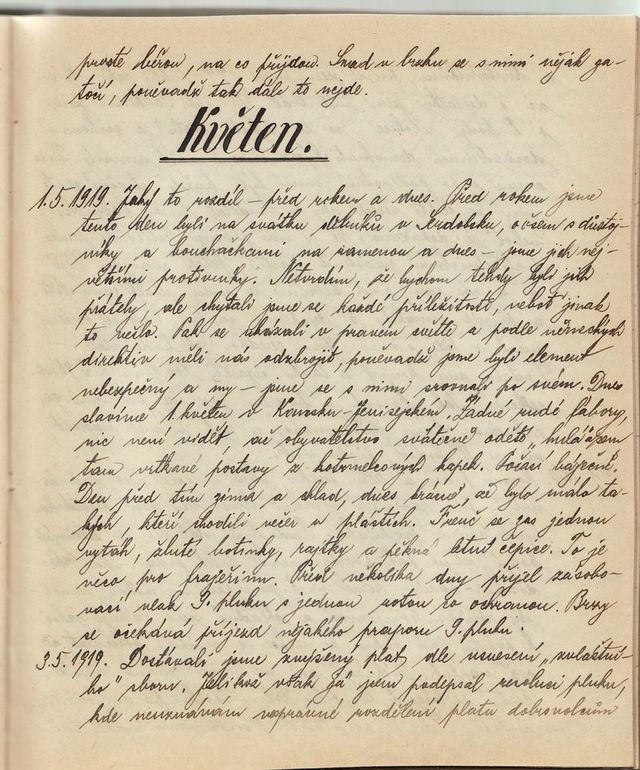 prostě běřou, na co přijdou. Snad v brzku se s nimi nějak za-
točí, poněvadž tak dále to nejde.
Květen.
1.5.1919. Jaký to rozdíl – před rokem a dnes. Před rokem jsme
tento den byli na svátku dělníků v Serdobsku, ovšem s důstoj-
níky a bouchačkami na ramenou a dnes – jsme jich nej-
většími protivníky. Netvrdím, že bychom tehdy byli jich
přátely, ale chytali jsme se každé příležitosti, neboť jinak
to nešlo. Pak se ukázali v pravém světle a podle německých
direktiv měli nás odzbrojit, poněvadž jsme byli element
nebezpečný a my – jsme se s nimi srovnali po svém. Dnes
slavíme 1. květen v Kansku-Jenisejském. Žádné rudé fábory,
nic není vidět, až obyvatelstvo svátečně oděté
tam vrtkavé postavy z kapek. Počasí báječné.
Den před tím zima a chlad, dnes krásně, až bylo málo ta-
kých, kteří chodili večer v pláštích. Fenč se zas jednou
vytáh, žluté botinky, rajtky a pěkná letní čepice. To je
něco pro frajeřinu. Před několika dny přijel zásobo-
vací vlak 9. pluku s jednou rotou co ochranou. Brzy
se očekává příjezd nějakého praporu 9. pluku.
3.5.1919. Dostávali jsme zvýšený plat dle usnesení „zvláštní-
ho" sboru. Jelikož však já jsem podepsal resoluci pluku,
kde neuznávám nesprávné rozdělení platu dobrovolcům